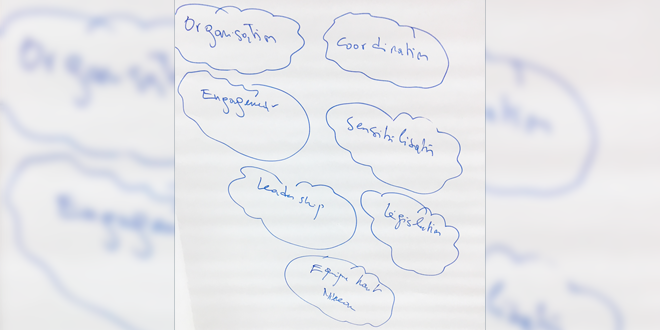 Organisation
Coordination
Engagement
Sensibilisation
Leadership
Législation
Equipe haut
Niveau